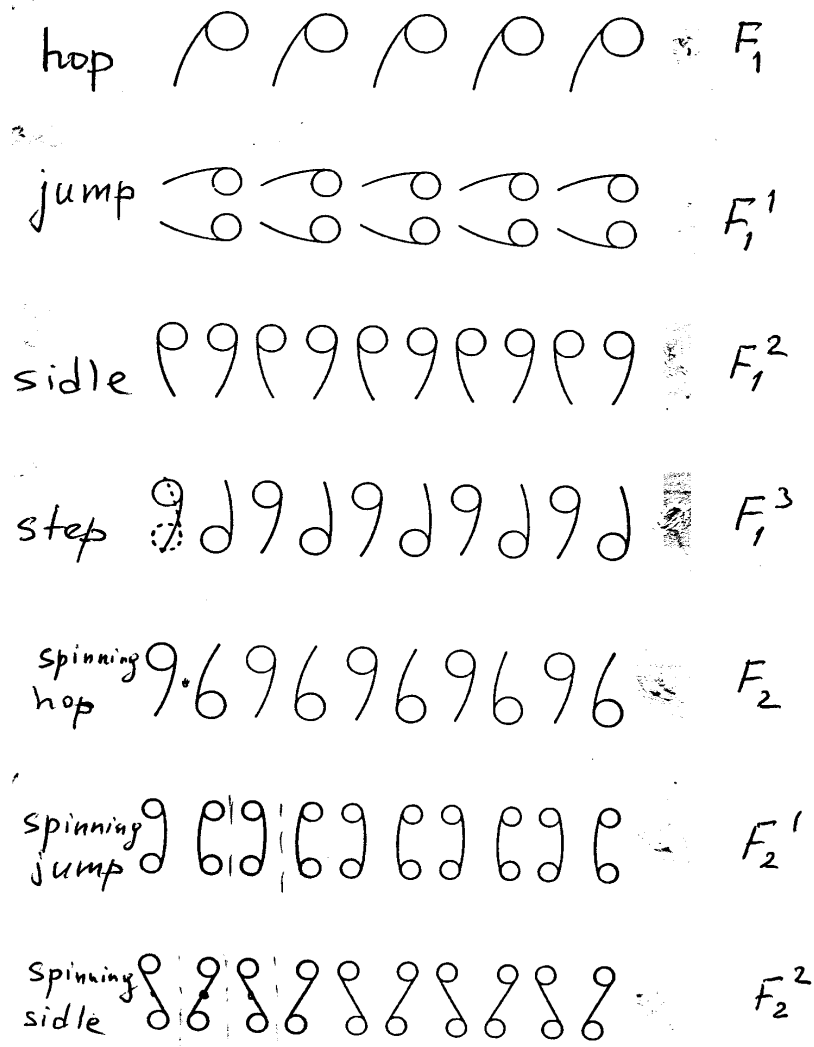 hop F₁
jump F₁¹
sidle F₁²
step F₁³
spinning hop F₂
spinning jump F₂¹
spinning sidle F₂²